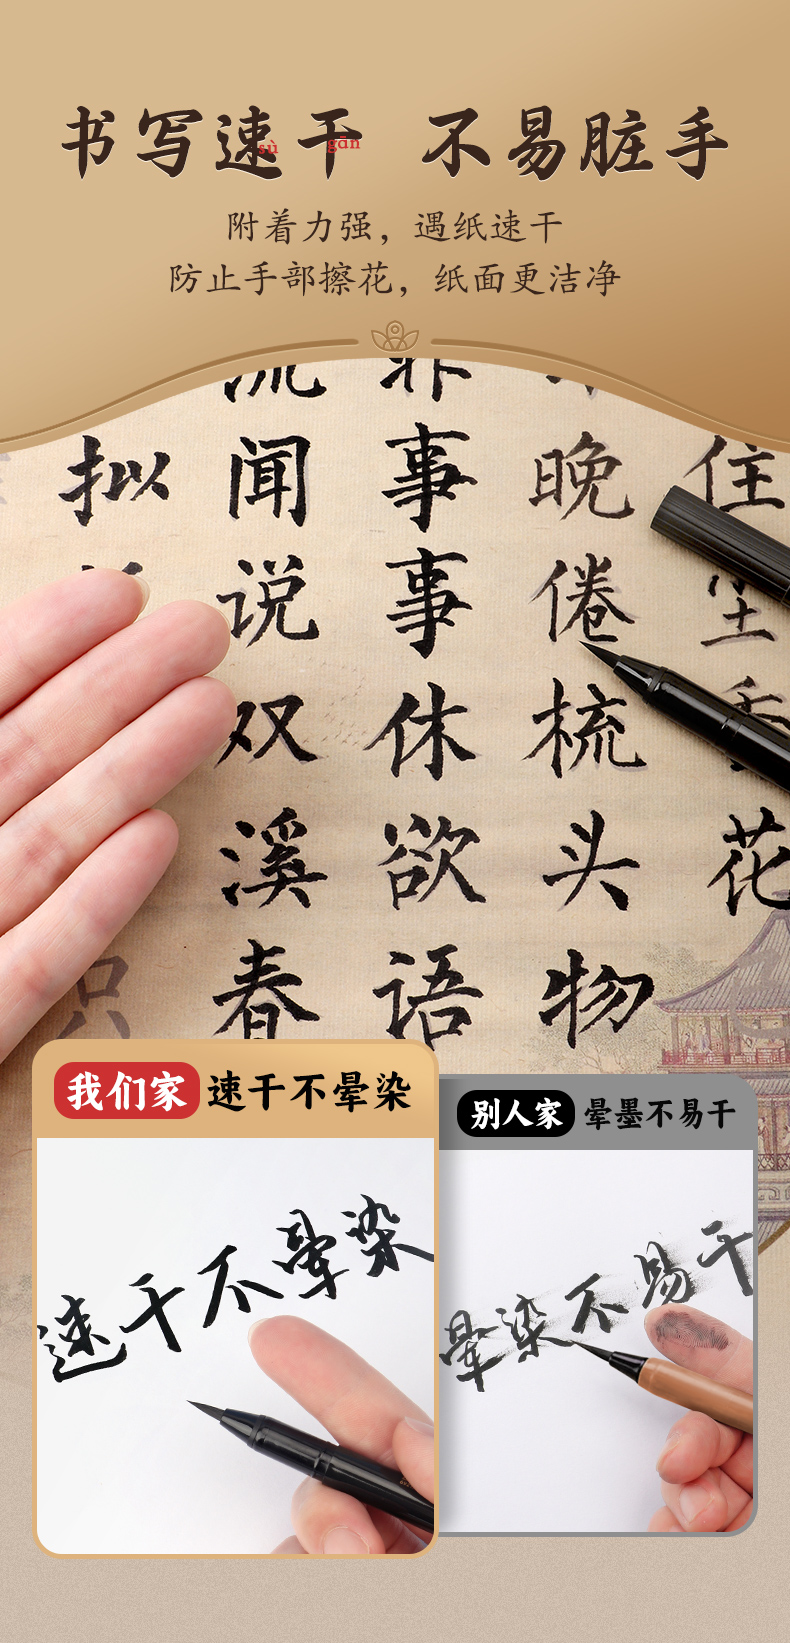 书写速干 不易脏手
sù gān
附着力强，遇纸速干
防止手部擦花，纸面更洁净
住尘香花
晚倦梳头物
非事事休欲语
流闻说双溪春
拟
只
我们家 速干不晕染
速干不晕染
别人家 晕墨不易干
晕染不易干